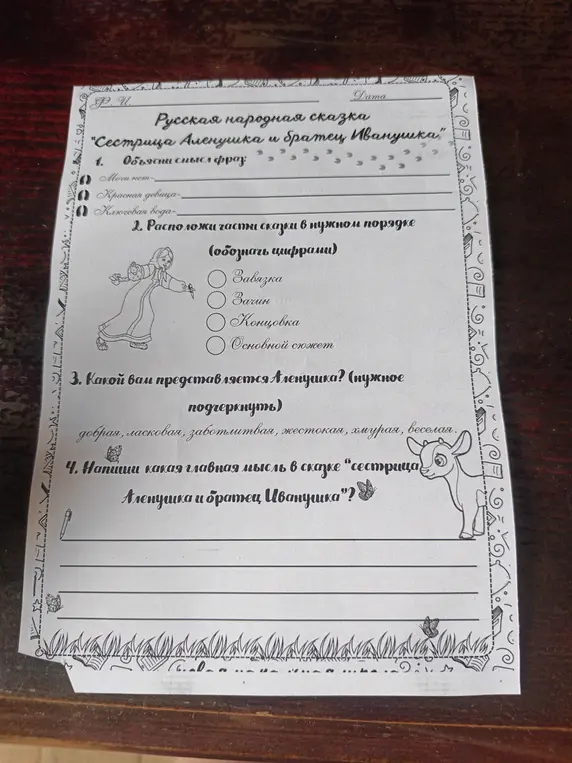 Ф. И. Дата
Русская народная сказка
"Сестрица Аленушка и братец Иванушка"
1. Объясни смысл фраз:
Мочи нет-
Красная девица-
Ключевая вода-
2. Расположи части сказки в нужном порядке
(обозначь цифрами)
Завязка
Зачин
Концовка
Основной сюжет
3. Какой вам представляется Аленушка? (нужное
подчеркнуть)
добрая, ласковая, заботлитвая, жестокая, хмурая, веселая.
4. Напиши какая главная мысль в сказке "сестрица
Аленушка и братец Иванушка"?